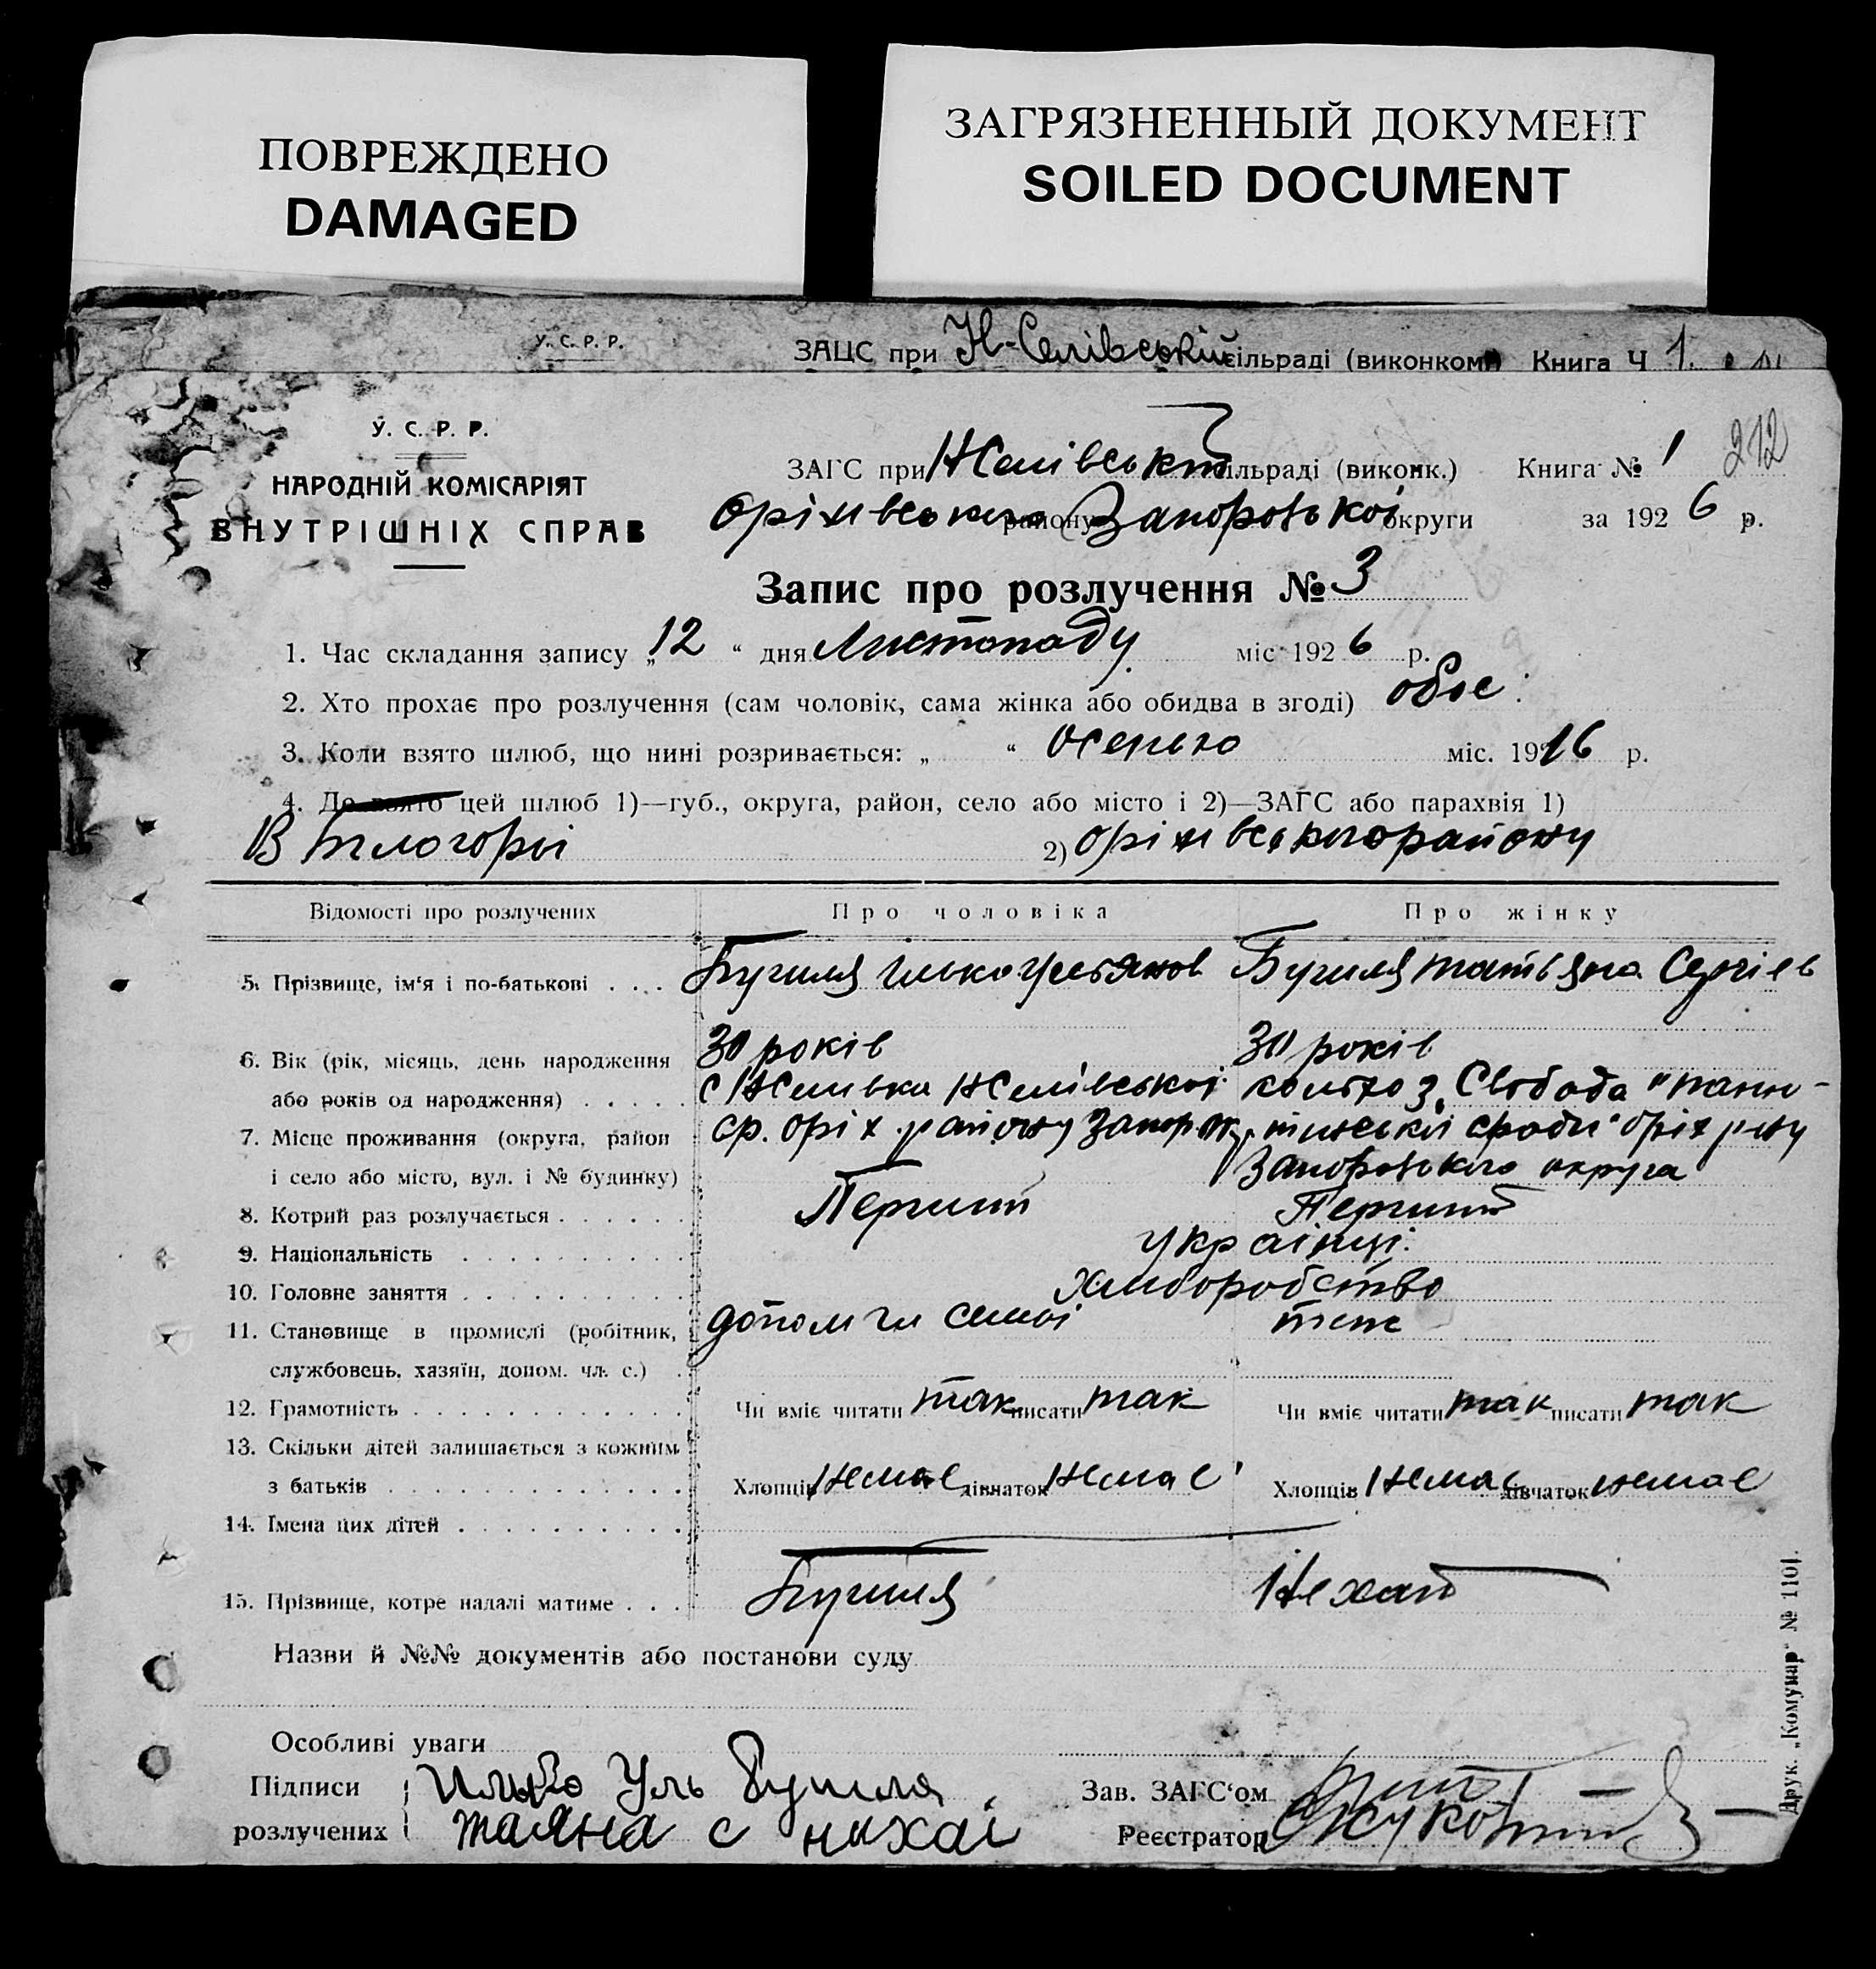 ПОВРЕЖДЕНО
DAMAGED
ЗАГРЯЗНЕННЫЙ ДОКУМЕНТ
SOILED DOCUMENT
У. С. Р. Р.
ЗАЦС при сільраді (виконкомі) Книга Ч 1.
212
У. С. Р. Р.
НАРОДНІЙ КОМІСАРІЯТ
ВНУТРІШНІХ СПРАВ
ЗАГС при сільраді (виконк.) Книга № 1
Оріхивського району Запорозької округи за 1926 р.
Запис про розлучення № 3
1. Час складання запису „12“ дня Листопаду міс 1926 р.
2. Хто прохає про розлучення (сам чоловік, сама жінка або обидва в згоді) обоє
3. Коли взято шлюб, що нині розривається: „ “ осенью міс. 1916 р.
4. Де взято цей шлюб 1)—губ., округа, район, село або місто і 2)—ЗАГС або парахвія 1)
В Білогорьі 2) Оріхивського району
Відомості про розлучених
Про чоловіка
Про жінку
5. Прізвище, ім‘я і по-батькові . . . Улья­нов Татьяна Сергіев
6. Вік (рік, місяць, день народження
або років од народження) . . . . .
30 років
30 років
7. Місце проживання (округа, район
і село або місто, вул. і № будинку)
ср. Оріх. району Запорож.
колхоз „Свобода“
Запорозького округа
8. Котрий раз розлучається . . . . . . Перший Перший
9. Національність . . . . . . . . . . українці
10. Головне заняття . . . . . . . . . . Хлиборобство
11. Становище в промислі (робітник,
службовець, хазяїн, допом. чл. с.) .
теж
12. Грамотність . . . . . . . . . . . . Чи вміє читати так писати так Чи вміє читати так писати так
13. Скільки дітей залишається з кожним
з батьків . . . . . . . . . . . . . Хлопців Немає дівчаток Немає Хлопців Немає дівчаток немає
14. Імена цих дітей . . . . . . . . . .
15. Прізвище, котре надалі матиме . . . Нехай
Назви й №№ документів або постанови суду
Особливі уваги
Підписи
розлучених
таяна с нихаі
Зав. ЗАГС‘ом
Реєстратор
Друк. „Комунар“ № 1101.